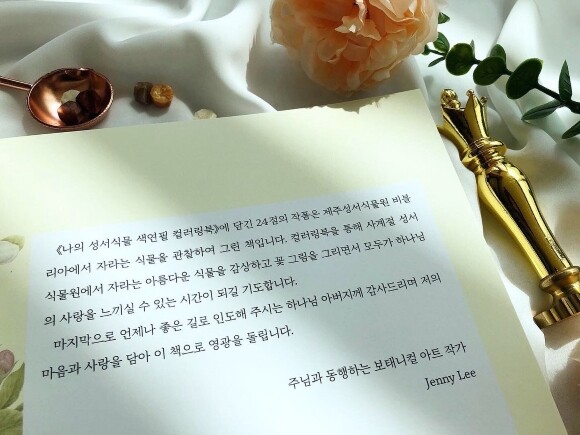 《나의 성서식물 색연필 컬러링북》에 담긴 24점의 작품은 제주성서식물원 비블
리아에서 자라는 식물을 관찰하여 그린 책입니다. 컬러링북을 통해 사계절 성서
식물원에서 자라는 아름다운 식물을 감상하고 꽃 그림을 그리면서 모두가 하나님
의 사랑을 느끼실 수 있는 시간이 되길 기도합니다.
마지막으로 언제나 좋은 길로 인도해 주시는 하나님 아버지께 감사드리며 저의
마음과 사랑을 담아 이 책으로 영광을 돌립니다.
주님과 동행하는 보태니컬 아트 작가
Jenny Lee